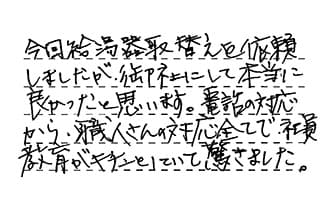 今回給湯器取替えを依頼
しましたが、御社にして本当に
良かったと思います。電話の対応
から、職人さんの対応全てで、社員
教育がキチンとしていて驚きました。